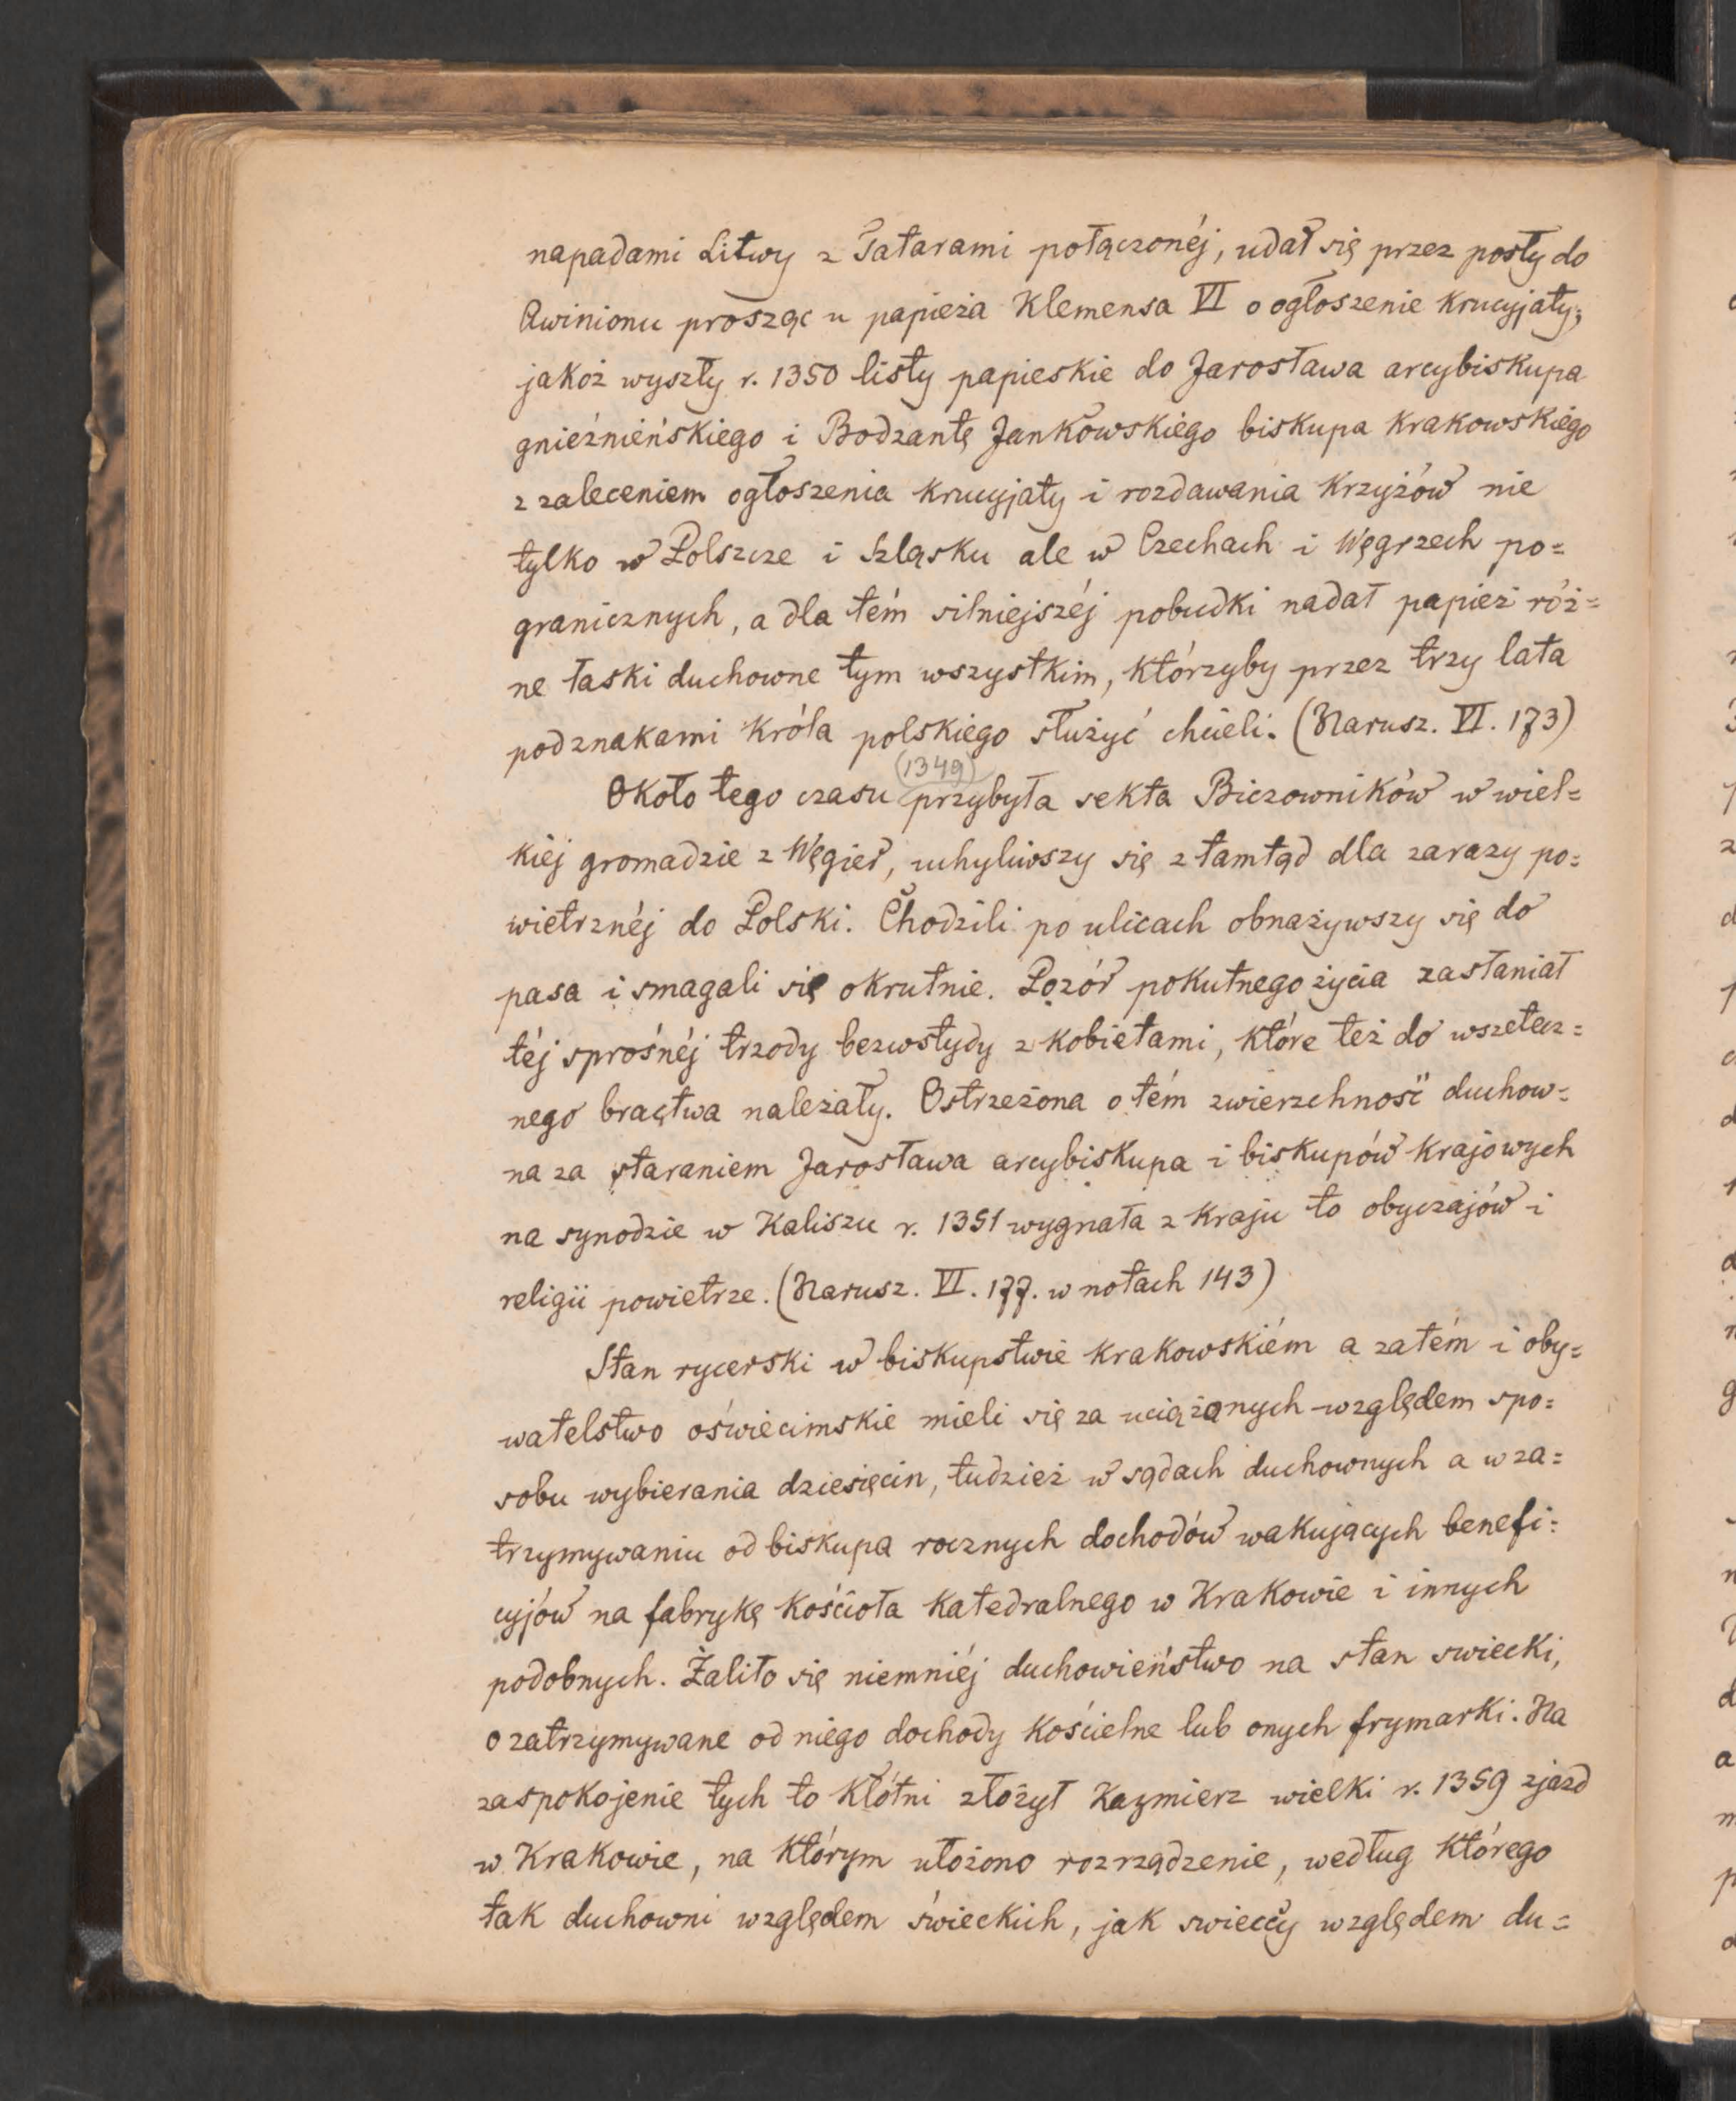 napadami Litwy z Tatarami połączonéj, udał się przez posły do
Awinionu prosząc u papieża Klemensa VI o ogłoszenie krucyjaty;
jakoż wyszły r. 1350 listy papieskie do Jarosława arcybiskupa
gnieźnieńskiego i Bodzantę Jankowskiego biskupa krakowskiego
z zaleceniem ogłoszenia krucyjaty i rozdawania krzyżów nie
tylko w Polszcze i Szląsku ale w Czechach i Węgrzech po=
granicznych, a dla tém silniejszéj pobudki nadał papież róż=
ne łaski duchowne tym wszystkim, którzyby przez trzy lata
pod znakami króla polskiego służyć chcieli. (Narusz. VI. 173)
(1349)
Około tego czasu przybyła sekta Biczowników w wiel=
kiéj gromadzie z Węgier, uchyliwszy się z tamtąd dla zarazy po=
wietrznéj do Polski. Chodzili po ulicach obnażywszy się do
pasa i smagali się okrutnie. Pozór pokutnego życia zasłaniał
téj sprośnéj trzody bezwstydy z kobietami, które też do wszetecz=
nego bractwa należały. Ostrzeżona o tém zwierzchność duchow=
na za staraniem Jarosława arcybiskupa i biskupów krajowych
na synodzie w Kaliszu r. 1351 wygnała z kraju to obyczajów i
religii powietrze. (Narusz. VI. 177. w notach 143)
Stan rycerski w biskupstwie krakowskiém a zatém i oby=
watelstwo oświecimskie mieli się za uciążonych względem spo=
sobu wybierania dziesięcin, tudzież w sądach duchownych a w za=
trzymywaniu od biskupa rocznych dochodów wakujących benefi=
cyjów na fabrykę kościoła katedralnego w Krakowie i innych
podobnych. Żaliło się niemniéj duchowieństwo na stan swiecki,
o zatrzymywane od niego dochody kościelne lub onych frymarki. Na
zaspokojenie tych to kłótni złożył Kazmierz wielki r. 1359 zjazd
w Krakowie, na którym ułożono rozrządzenie, według którego
tak duchowni względem świeckich, jak swieccy względem du=